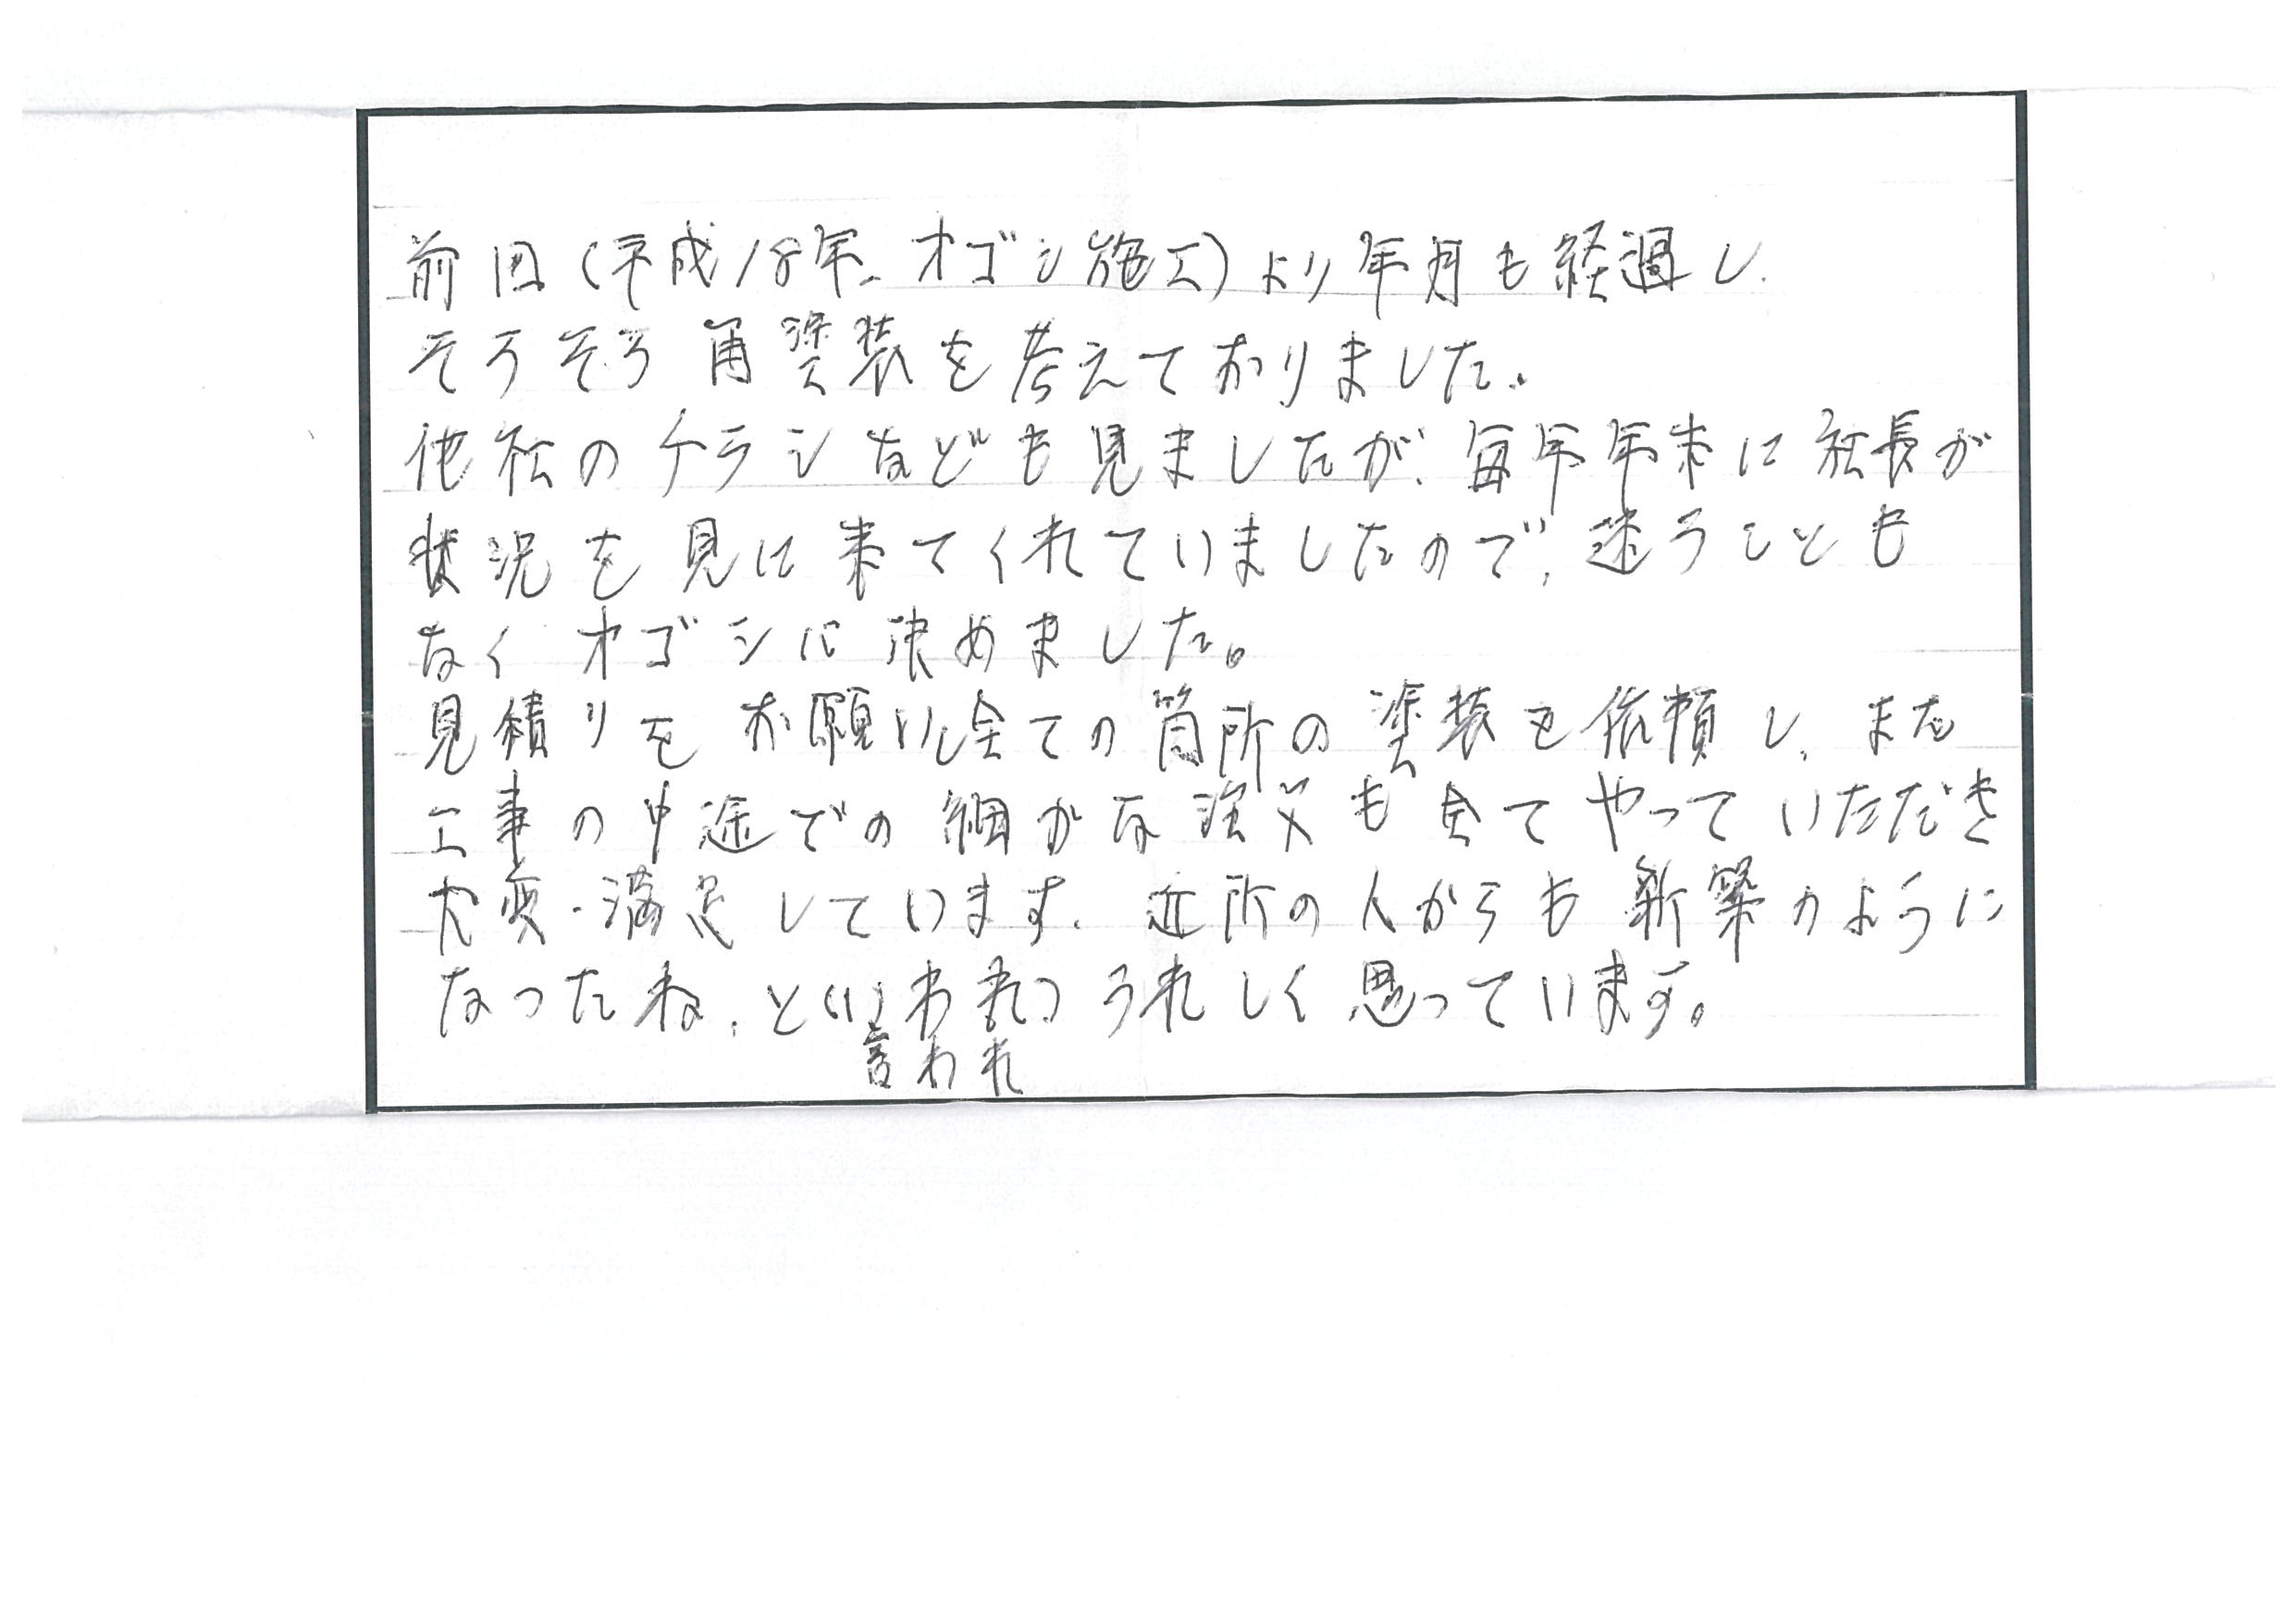 前回（平成18年、オゴシ施工）より年月も経過し、
そろそろ再塗装を考えておりました。
他社のチラシなども見ましたが、毎年年末に社長が
状況を見に来てくれていましたので、迷うことも
なくオゴシに決めました。
見積りをお願いし全ての箇所の塗装を依頼し、また
工事の中途での細かな注文も全てやっていただき
大変満足しています。近所の人からも新築のように
なったね、と(いわれ)うれしく思っています。
言われ